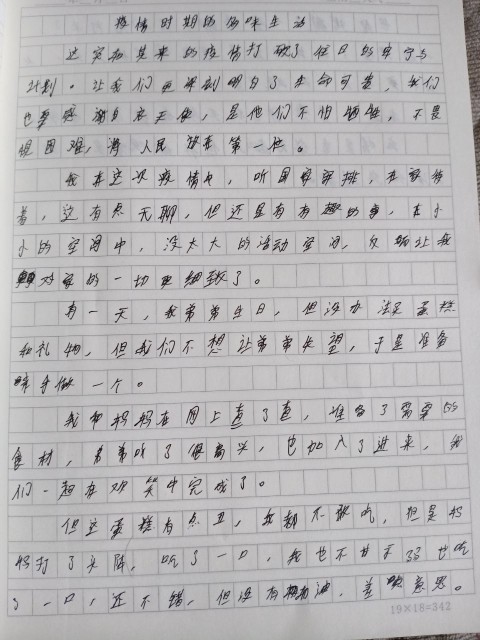 疫情时期的趣味生活
这突如其来的疫情打破了往日的安宁与
计划。让我们更深刻明白了生命可贵，我们
也要感谢白衣天使，是他们不怕牺牲，不畏
艰困难，将人民放在第一位。
我在这次疫情中，听国家安排，在家待
着，这有点无聊，但还是有有趣的事，在小
小的空间中，没太大的活动空间，反倒让我
对家的一切更细致了。
有一天，我弟弟生日，但没办法买蛋糕
和礼物，但我们不想让弟弟失望，于是准备
联手做一个。
我和妈妈在网上查了查，准备了需要的
食材，弟弟听了很高兴，也加入了进来，我
们一起在欢笑中完成了。
但这蛋糕有点丑，我都不敢吃，但是妈
妈打了头阵，吃了一口，我也不甘示弱也吃
了一口，还不错，但没有奶油，差点意思。
19×18=342